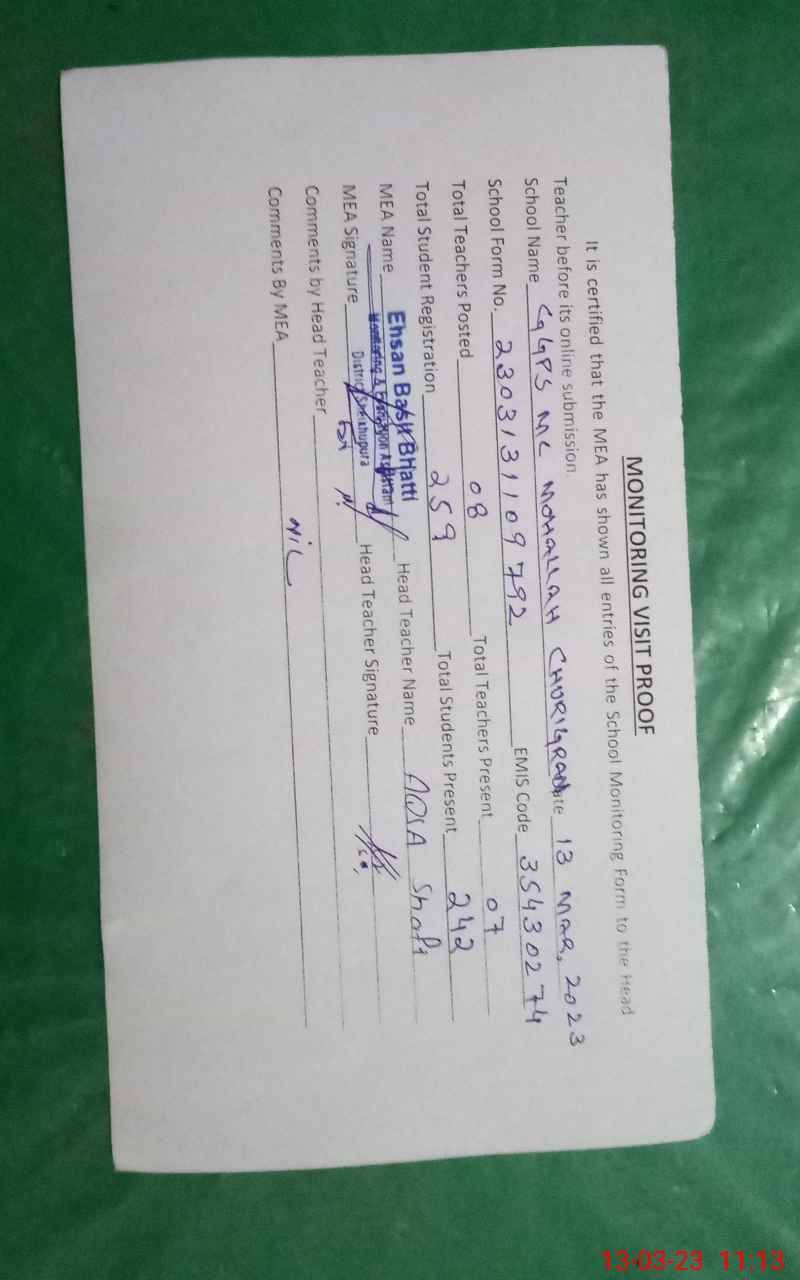 MONITORING VISIT PROOF
It is certified that the MEA has shown all entries of the School Monitoring Form to the Head
Teacher before its online submission.
School Name GGPS MC MOHALLAH Date 13 MAR, 2023
School Form No. 2303131109792 EMIS Code 35430274
Total Teachers Posted 08 Total Teachers Present 07
Total Student Registration 259 Total Students Present 242
MEA Name Ehsan Basir Bhatti Head Teacher Name AQSA Shafi
Monitoring & Evaluation Assistant
District Sheikhupura
MEA Signature Head Teacher Signature
Comments by Head Teacher
Comments By MEA NIL
13-03-23 11:13